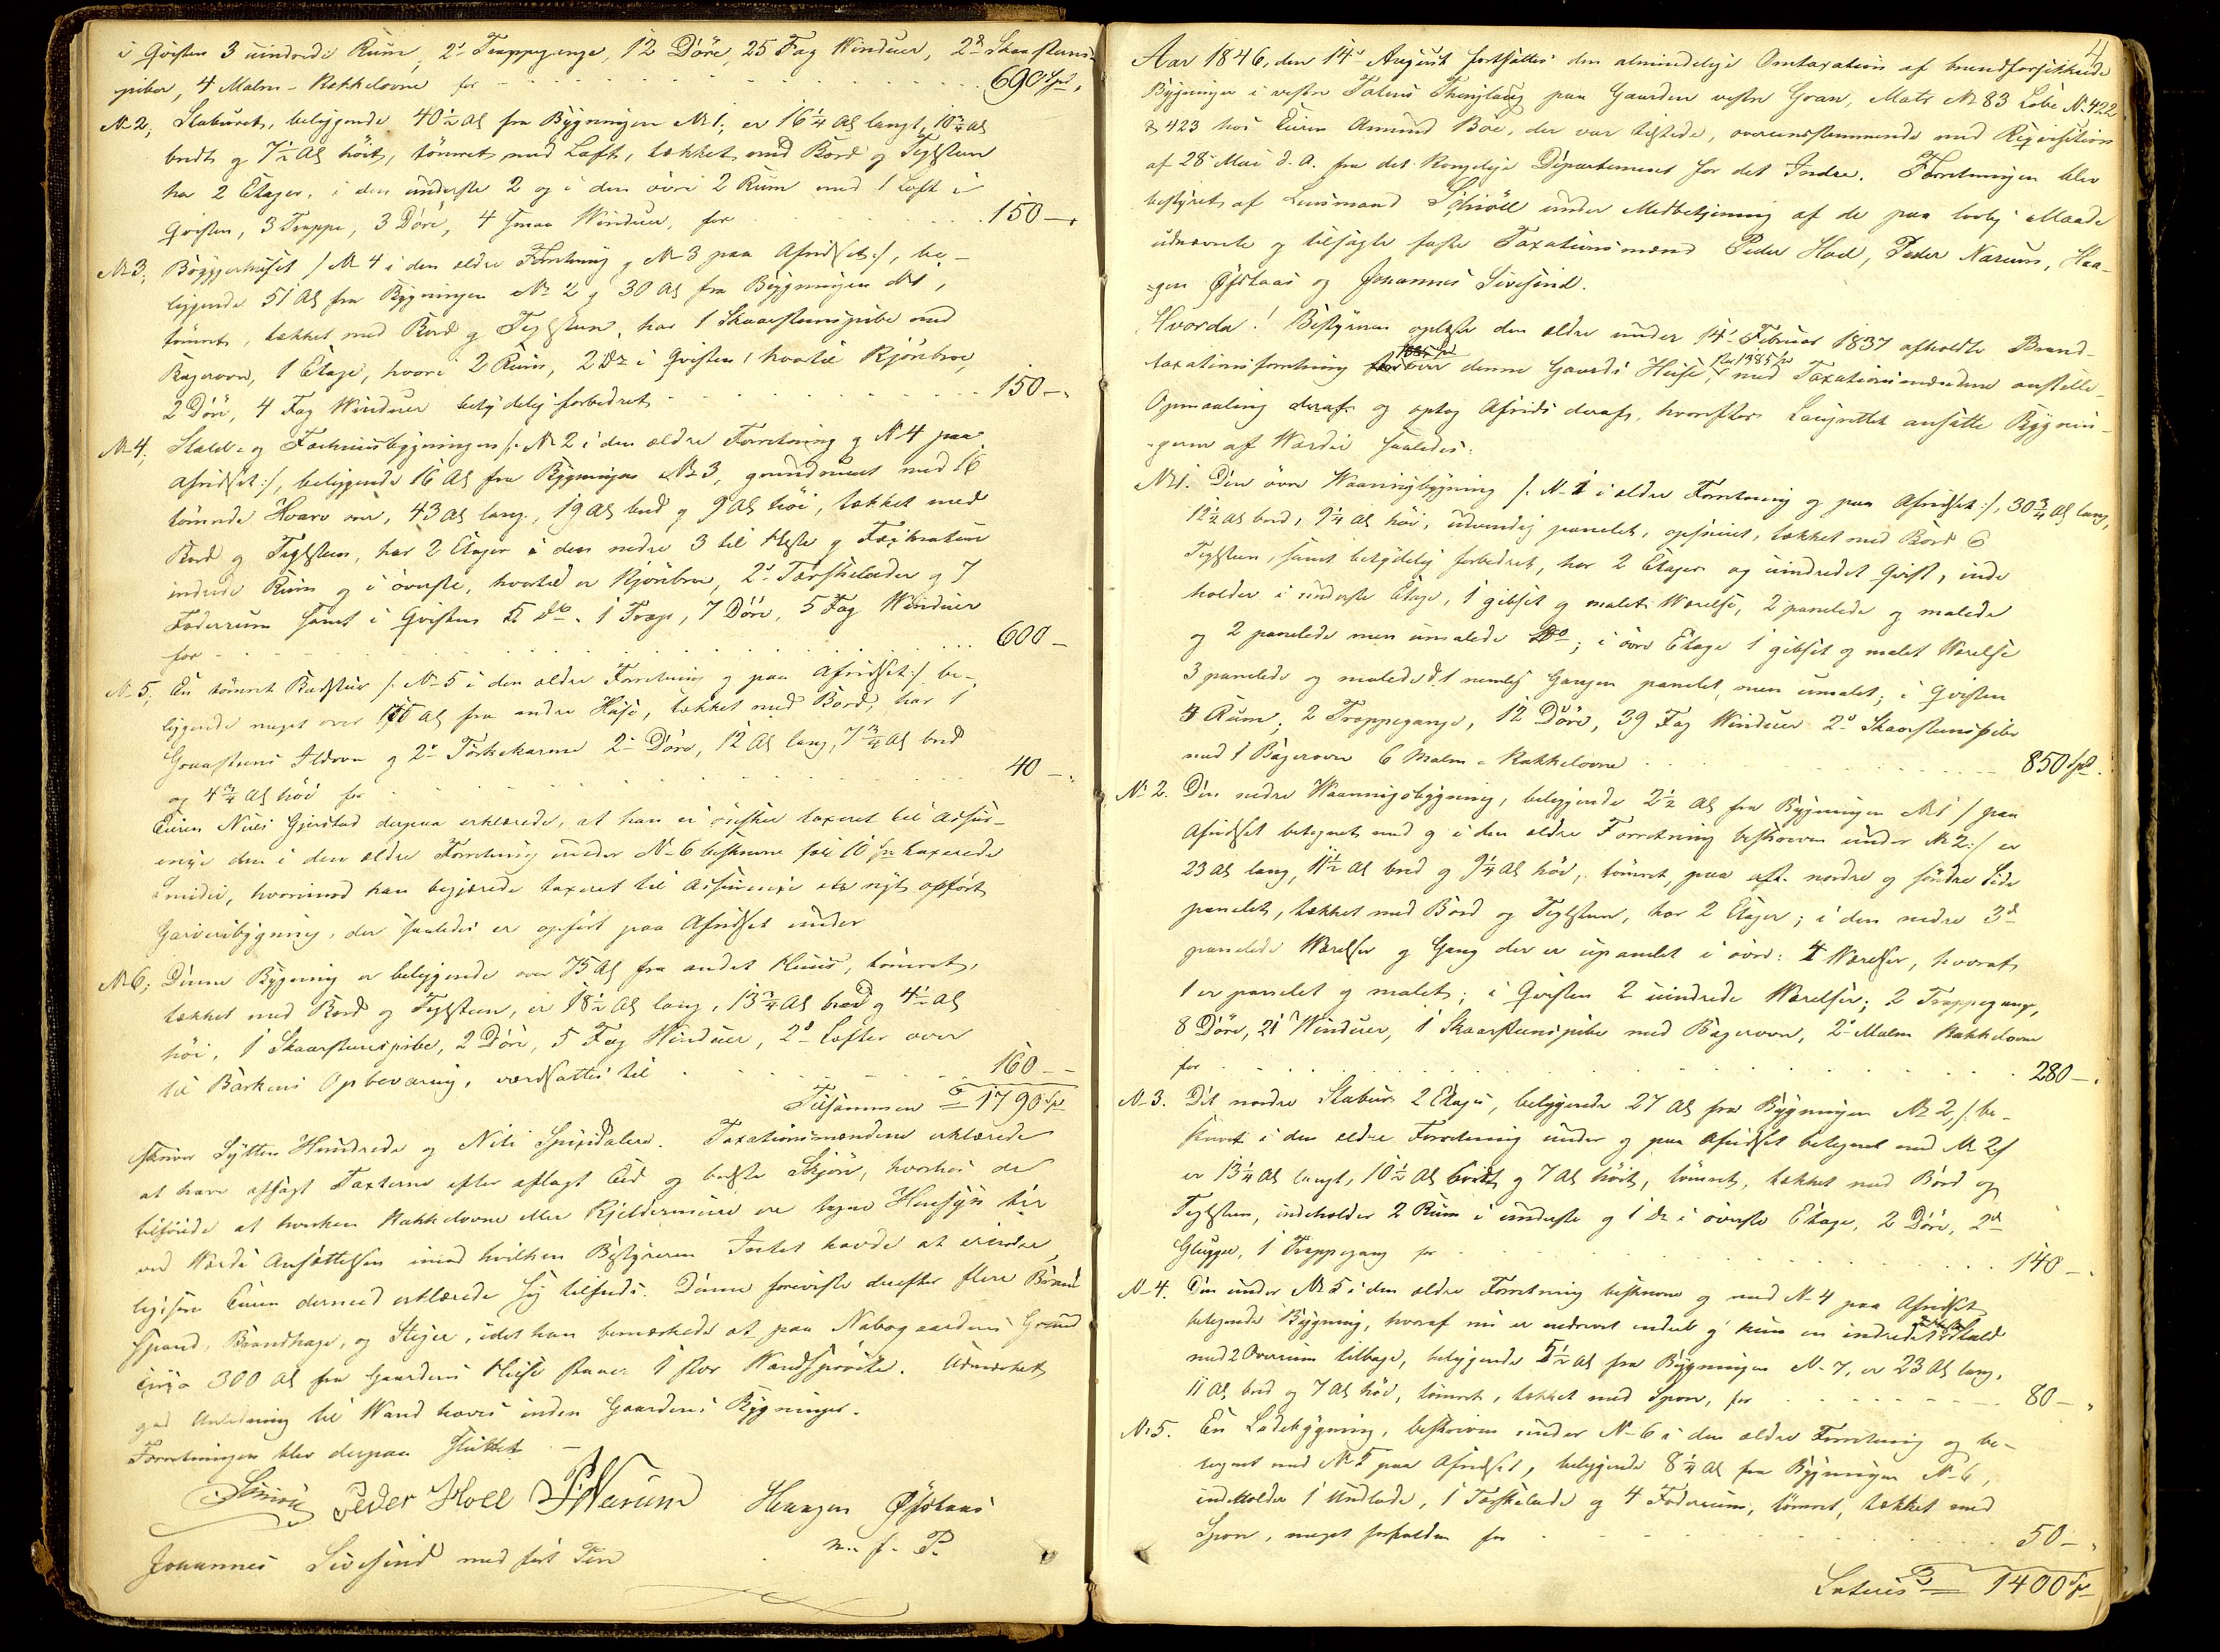 i Qvisten 3 uindrede Rum, 2 Trappegange, 12 Döre, 25 Fag Vinduer, 2 Skaarsteens-
piber, 4 Malm-Kakkelovne for 690 Spd,
No 2, Staburet, beliggende 40 1/2 Al fra Bygningen No 1, er 16 1/4 Al langt, 10 3/4 Al
bredt og 7 1/2 Al höit, tömret med Loft, tækket med Bord og Teglsteen
har 2 Etager, i den underste 2 og i den övre 2 Rum med 1 Loft i
Qvisten, 3 Trappe, 3 Döre, 4 smaa Vinduer, for 150 —
No 3, Bryggerhuset /: No 4 i den ældre Forretning og No 3 paa Afridset :/, be-
liggende 51 Al fra Bygningen No 2 og 30 Al fra Bygningen No 1,
tömret, tækket med Bord og Teglsteen, har 1 Skaarsteenspibe med
Bagerovn, 1 Etage, hvori 2 Rum, 2 Do i Qvisten, hvortil Kjörebroe,
2 Döre, 4 Fag Vinduer betydelig forbedret 150 —
No 4, Stald- og Fæehuusbygningen /: No 2 i den ældre Forretning og No 4 paa
Afridset :/, beliggende 16 Al fra Bygningen No 3, grundmuret med 16
tömrede Hvarv over, 43 Al lang, 19 Al bred og 9 Al höi, tækket med
Bord og Teglsteen, har 2 Etager i den nedre 3 til Heste og Fækreature
indrede Rum og i överste, hvortil er Kjörebroe, 2 Tærskelader og 7
Foderrum samt i Qvisten 5 Do, 1 Trap, 7 Döre, 5 Fag Vinduer
for 600 —
No 5, En tömret Badstue /: No 5 i den ældre Forretning og paa Afridset :/ be-
liggende meget over 100 Al fra andre Huse, tækket med Bord, har 1
Graasteens Ildovn og 2 Törkekarme 2 Döre, 12 Al lang, 7 3/4 Al bred
og 4 3/4 Al höi for 40 —
Eieren Niels Gjerstad derpaa erklærede, at han ei önsker taxeret til Assur-
ence den i den ældre Forretning under No 6 beskrevne for 10 Spd taxerede
Smidie, hvorimod han begjærede taxeret til Assurence et nyt opfört
Garveribygning, der saaledes er opfört paa Afridset under
No 6, Denne Bygning er beliggende over 75 Al fra andet Huus, tömret,
tækket med Bord og Teglsteen, er 18 1/2 Al lang, 13 3/4 Al bred og 4 1/2 Al
höi, 1 Skaarsteenspibe, 2 Döre, 5 Fag Vinduer, 2 Lofter over
til Barkens Opbevaring, værdsattes til 160 —
Tilsammen = 1790 Spd
skriver Sytten Hundrede og Niti Speciedalere. Taxationsmændene erklærede
at have afsagt Taxterne efter aflagt Eed og bedste Skjön, hvorhos de
tilföiede at hverken Kakkelovne eller Kjeldermure er tagne Hensyn til
ved Værdi Ansættelsen imod hvilken Bestyreren Intet havde at erindre
ligesom Eieren dermed erklærede sig tilfreds. Denne foreviste derefter flere Brand
Spand, Brandhage, og Stiger, idet han bemærkede at paa Nabogaardens Grund
circa 300 Al fra Gaardens Huse staaer 1 stor Vandspröite. Udmærket
god Anledning til Vand haves inden Gaardens Bygninger.
Forretningen blev derpaa sluttet. —
Peder Hoel PNarum Haagen Öfstaas
Johannes Sivesind med fört Pen m. f. P.
4
Aar 1846, den 14 August fortsattes den almindelige Omtaxation af brandforsikkrede
Bygninger i vestre Totens Thinglaug paa Gaarden vestre Gran, Matr No 83 Löbe No 422
& 423 hos Eieren Amund Böe, der var tilstede, overeensstemmende med Reqvisition
af 28 Mai d. A. fra det Kongelige Departement for det Indre. Forretningen blev
bestyret af Lensmand Schiöll under Medbetjening af de paa lovlig Maade
udnævnte og tilsagte faste Taxationsmænd Peder Hoel, Peder Narum, Haa-
gen Öfstaas og Johannes Sivesind.
Hvorda! Bestyreren oplæste den ældre under 14 Februar 1837 afholdte Brand-
taxationsforretning over denne Gaards Huse, stor 1385 Spd med Taxationsmændene anstille
Opmaaling deraf og optog Afrids deraf, hvorefter Laugrettet ansatte Bygnin-
gerne af Værdie saaledes:
No 1. Den övre Vaaningsbygning /: No 1 i ældre Forretning og paa Afridset :/, 30 3/4 Al lang,
12 1/2 Al bred, 9 1/4 Al höi, udvendig panelet, opfriset, tækket med Bord &
Teglsteen, samt betydelig forbedret, har 2 Etager og uindredet Qvist, inde
holder i underste Etage, 1 gibset og malet Værelse, 2 panelede og malede
og 2 panelede men umalede Do; i övre Etage 1 gibset og malet Værelse
3 panelede og malede & 1 nemlig Gangen panelet men umalet; i Qvisten
4 Rum; 2 Trappegange, 12 Döre, 39 Fag Vinduer 2 Skaarsteenspibe
med 1 Bagerovn 6 Malm-Kakkelovne 850 Spd.
No 2. Den nedre Vaaningsbygning, beliggende 2 1/2 Al fra Bygningen No 1 /: paa
Afridset betegnet med og i den ældre Forretning beskreven under No 2 :/ er
23 Al lang, 11 1/2 Al bred og 9 1/4 Al höi, tömret, paa öst- nordre og söndre Side
panelet, tækket med Bord og Teglsteen, har 2 Etager; i den nedre 3
panelede Værelser og Gang der er upanelet i övre: 4 Værelser, hvoraf
1 er panelet og malet; i Qvisten 2 uindrede Værelser; 2 Trappegange,
8 Döre, 21 Vinduer, 1 Skaarsteenspibe med Bagerovn, 2 Malm Kakkelovne
for 280 —
No 3. Det nordre Stabur 2 Etager, beliggende 27 Al fra Bygningen No 2, /: be-
skrevet i den ældre Forretning under og paa Afridset betegnet med No 2 :/
er 13 1/4 Al langt, 10 1/2 Al bredt og 7 Al höit, tömret, tækket med Bord og
Teglsteen, indeholder 2 Rum i underste og 1 Do i överste Etage, 2 Döre, 2
Glugger, 1 Trappegang for 140 —
No 4. Den under No 5 i den ældre Forretning beskrevne og med No 4 paa Afridset
betegnede Bygning, hvoraf nu er nedrevet endeel og kun en indredet Stald
med 2 Overrum tilbage, beliggende 5 1/2 Al fra Bygningen No 7, er 23 Al lang,
11 Al bred og 7 Al höi, tömret, tækket med Spon, for 80 —
No 5. En Ladebygning, beskreven under No 6 i den ældre Forretning og be-
tegnet med No 5 paa Afridset, beliggende 8 1/4 Al fra Bygningen No 6,
indeholder 1 Undlade, 1 Tærskelade og 4 Foderrum, tömret, tækket med
Spon, meget forfalden for 50 —
Lateris = 1400 Spd